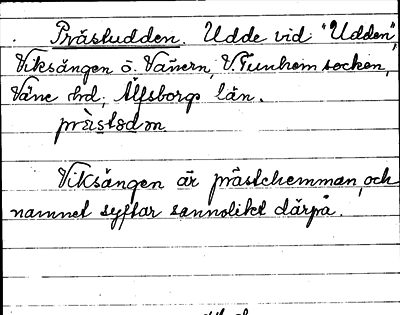 Prästudden. Udde vid "Udden",
Viksängen ö. Vänern, V. Tunhem socken,
Väne hd, Älfsborgs län.
prästodn
Viksängen är prästehemman, och
namnet syftar sannolikt därpå.